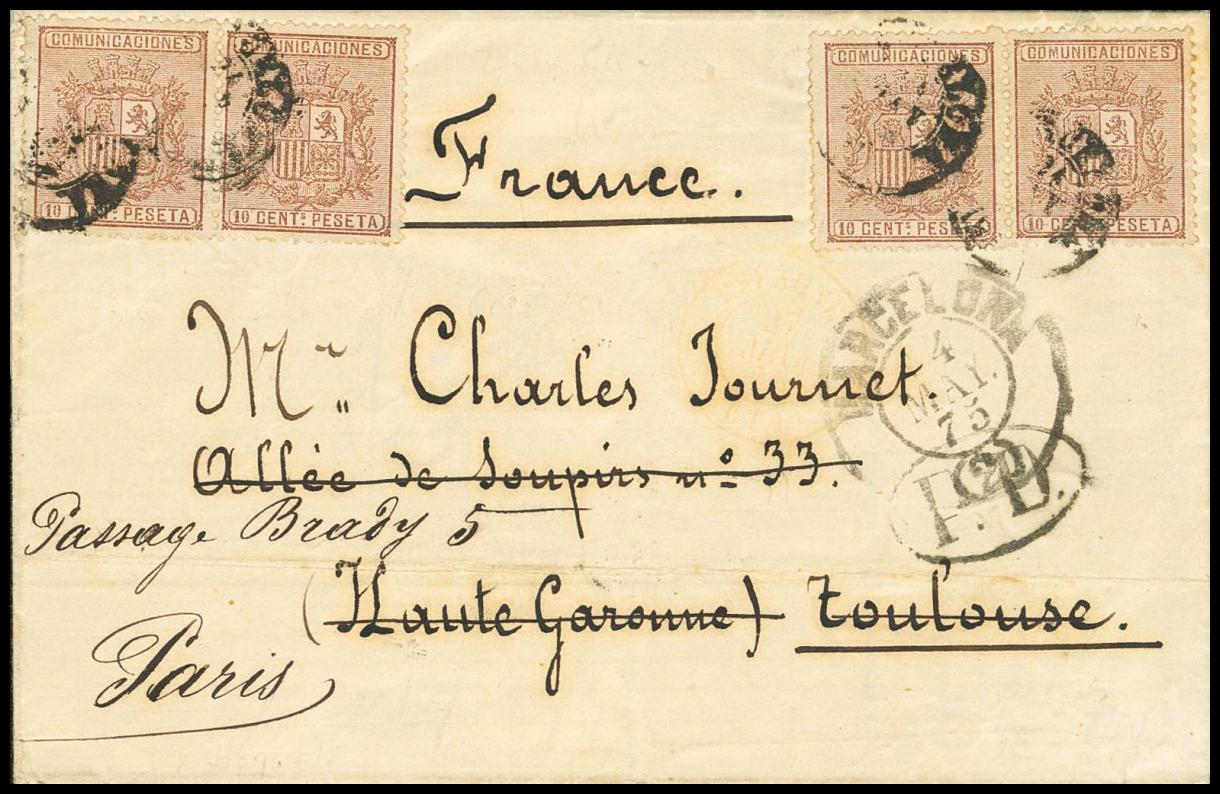 COMUNICACIONES COMUNICACIONES COMUNICACIONES COMUNICACIONES
10 CENTS PESETA 10 CENTS PESETA 10 CENTS PESETA 10 CENTS PESETA
France.
BARCELONA
4
MAY.
75
(2)
P.D.
Mr Charles Journet.
Allée de Soupirs nº 33.
Passage Brady 5
(Haute Garonne) Toulouse.
Paris